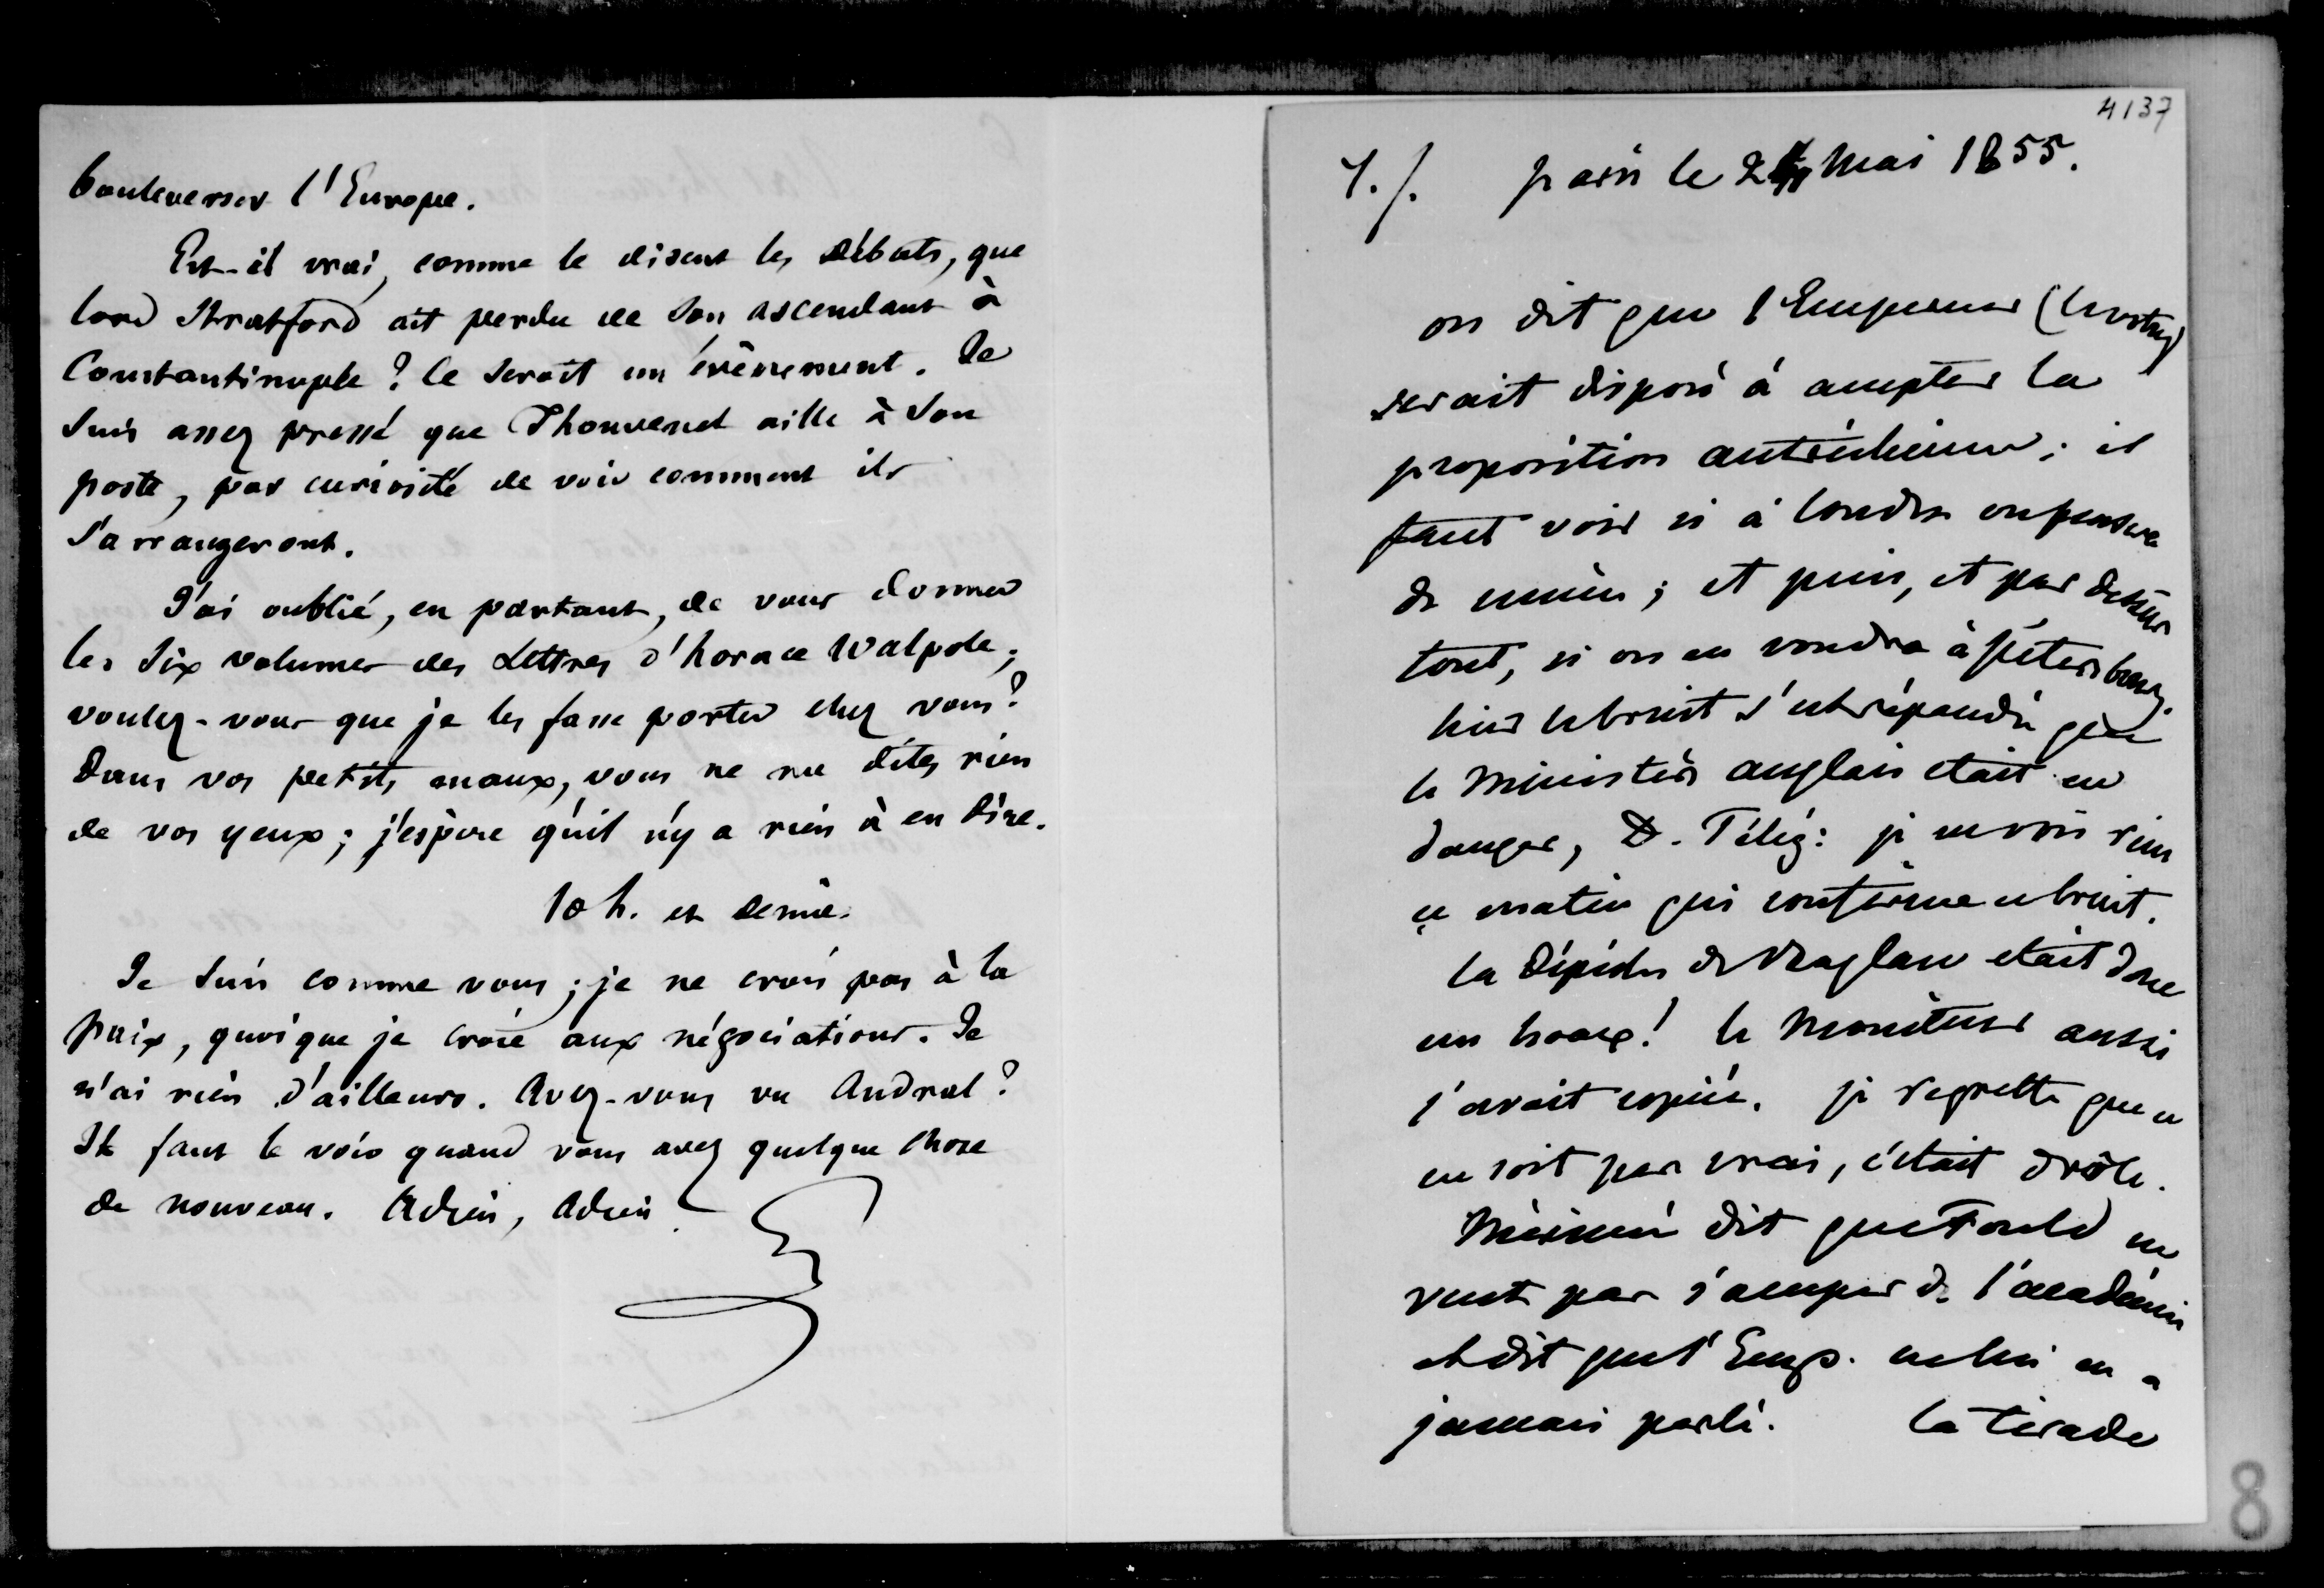 bouleverser l'Europe.
Est-il vrai, comme le disent les Débats, que
lord Stratford ait perdu de son ascendant à
Constantinople? Ce serait un évènement. Je
suis assez pressé que Thouvenel aille à son
poste, par curiosité de voir comment ils
s'arrangeront.
J'ai oublié, en partant, de vous donner
les six volumes des Lettres d'horace Walpole;
voulez-vous que je les fasse porter chez vous?
Dans vos petits maux, vous ne me dites rien
de vos yeux; j'espère qu'il n'y a rien à en dire.
10 h. et demie.
Je suis comme vous; je ne crois pas à la
paix, quoique je croie aux négociations. Je
n'ai rien d'ailleurs. Avez-vous vu Andral?
Il faut le voir quand vous avez quelque chose
de nouveau. Adieu, Adieu
4137
paris le 24 Mai 1855.
on dit que l'Empereur (le votre)
serait disposé à accepter la
proposition autrichienne; il
faut voir si à Londres on pensera
de même; et puis, et par dessus
tout, si on en voudra à pétersbourg.
hier le bruit s'est répandu que
le Ministère anglais etait en
danger, D. Télég: je ne vois rien
ce matin qui confirme ce bruit.
la dépèche de Raglan etait donc
un hoax! le Moniteur aussi
l'avait copiée. je regrette que ce
ne soit pas vrai, c'était drôle.
Mérimée dit que Fould ne
veut pas s'occuper de l'académie
et dit que l'Emp. ne lui en a
jamais parlé. la tirade
8